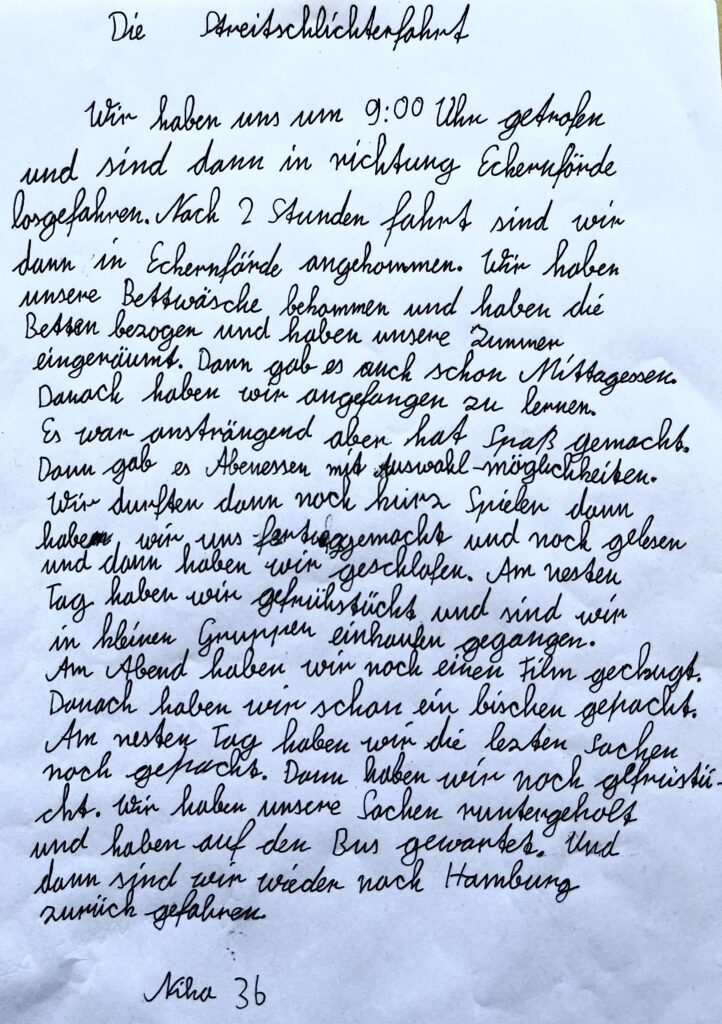 Die Streitschlichterfahrt
Wir haben uns um 9:00 Uhr getrofen
und sind dann in richtung Eckernförde
losgefahren. Nach 2 Stunden fahrt sind wir
dann in Eckernförde angekommen. Wir haben
unsere Bettwäsche bekommen und haben die
Betten bezogen und haben unsere Zimmer
eingeräumt. Dann gab es auch schon Mittagessen.
Danach haben wir angefangen zu lernen.
Es war ansträngend aber hat Spaß gemacht.
Dann gab es Abenessen mit Auswahl-möglichkeiten.
Wir durften dann noch kurz Spielen dann
haben wir uns fertiggemacht und noch gelesen
und dann haben wir geschlafen. Am nesten
Tag haben wir gefrühstückt und sind wir
in kleinen Gruppen einkaufen gegangen.
Am Abend haben wir noch einen Film geckugt.
Danach haben wir schon ein bischen gepackt.
Am nesten Tag haben wir die lezten Sachen
noch gepackt. Dann haben wir noch gefrüstü-
ckt. Wir haben unsere Sachen runtergeholt
und haben auf den Bus gewartet. Und
dann sind wir wieder nach Hamburg
zurück gefahren.
Nika 3b